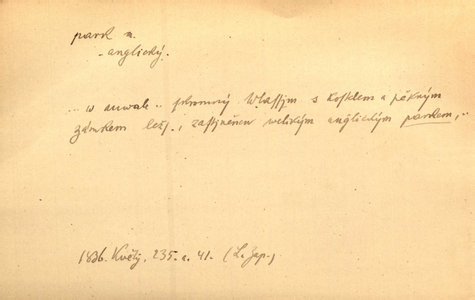 park m.
- anglický.
"... w auwale .. Wlassjm s kostelem a pěkným
zámkem lež., zastjněnau welikým anglickým parkem, "
1836. Květy, 235. a. 41. (L. Zap.)